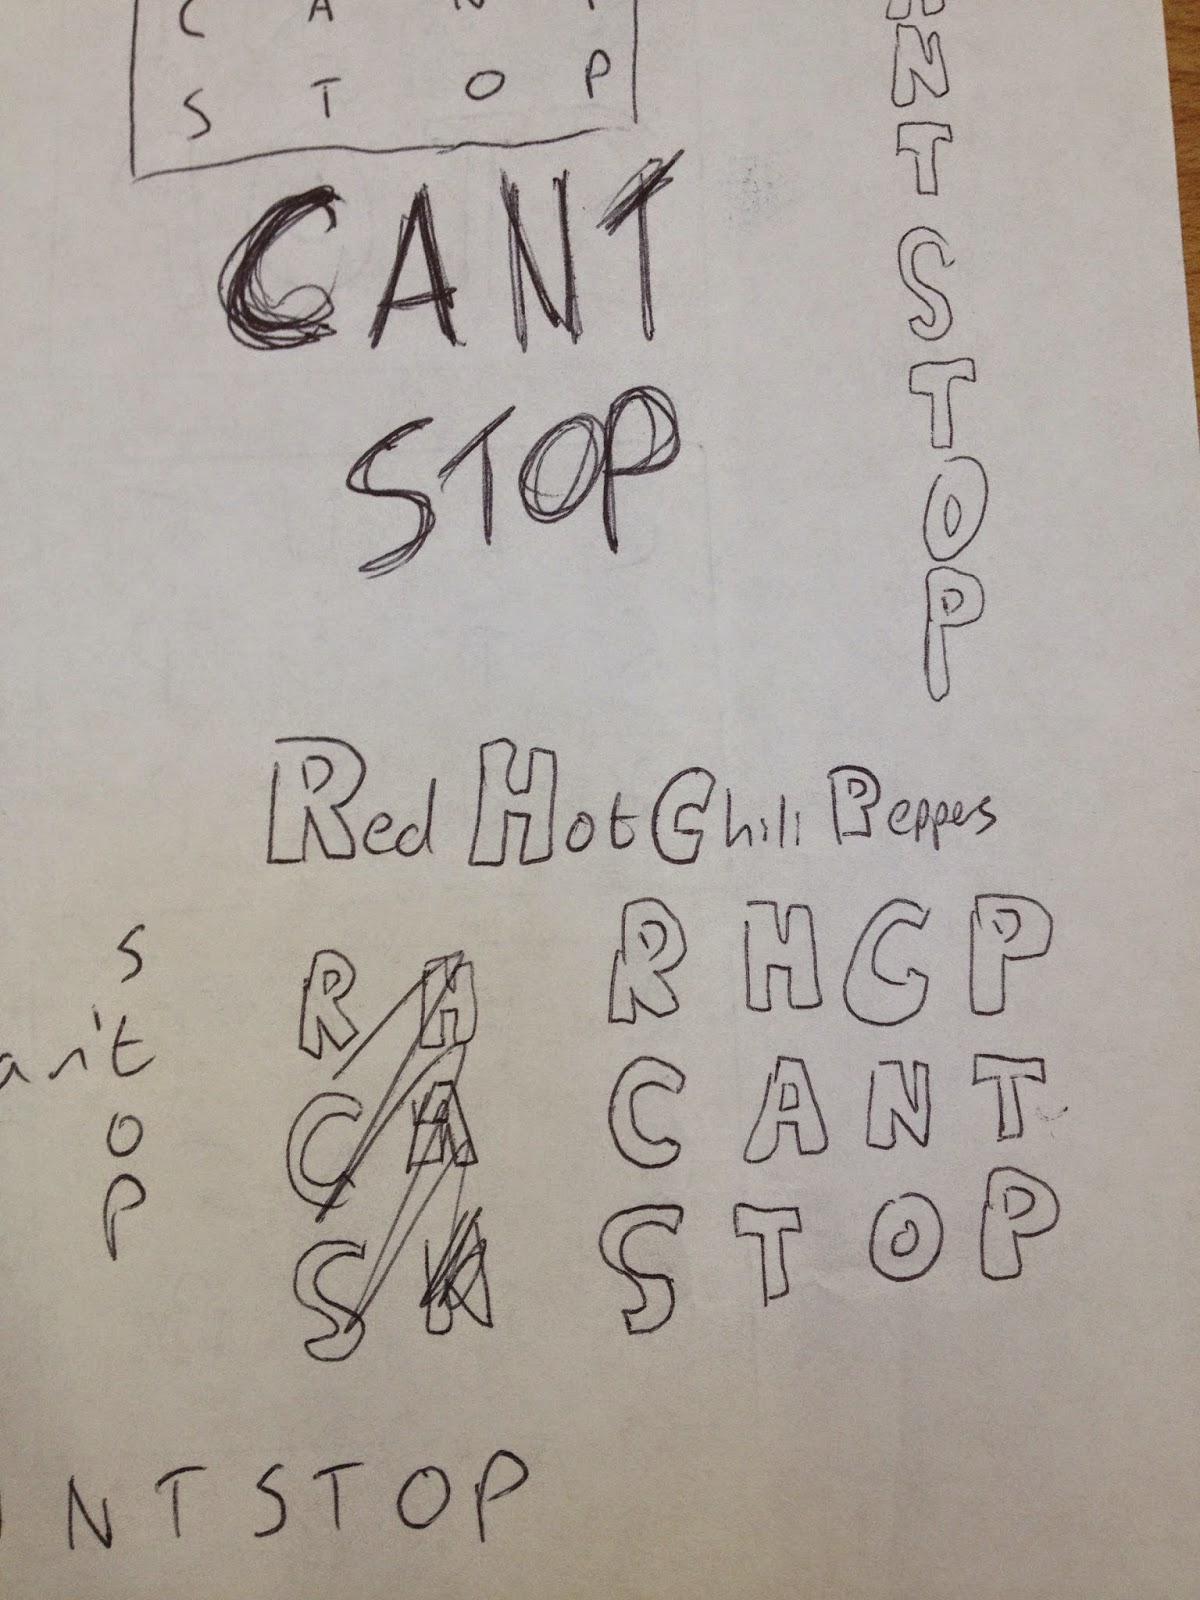 C A N T
S T O P
CANT
STOP
NT STOP
Red Hot Chili Peppes
R H C P
C A N T
S T O P
R H
C A
S
S
an't
O
P
N T S T O P